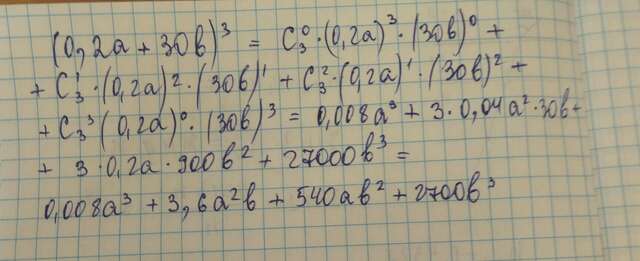 (0,2a + 30b)³ = C₃⁰·(0,2a)³·(30b)⁰ +
+ C₃¹·(0,2a)²·(30b)¹ + C₃²·(0,2a)¹·(30b)² +
+ C₃³(0,2a)⁰·(30b)³ = 0,008a³ + 3·0,04a²·30b+
+ 3·0,2a·900b² + 27000b³ =
0,008a³ + 3,6a²b + 540ab² + 2700b³